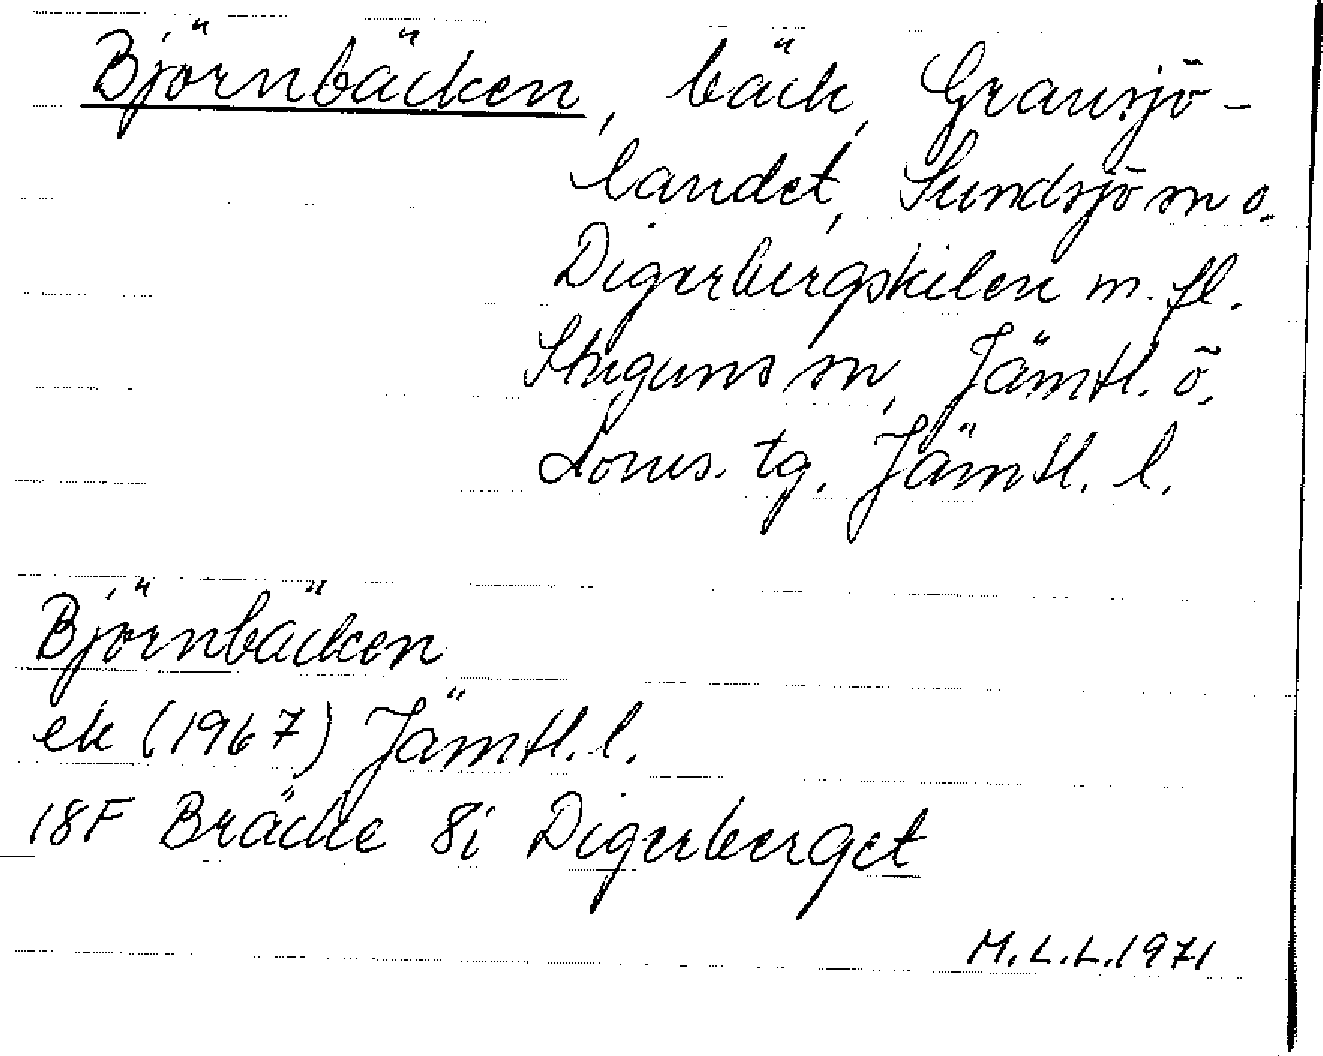 Björnbäcken, bäck, Gransjö-
landet, Sundsjö sn o.
Digerbergskilen m. fl.
Stuguns sn, Jämtl. ö.
doms. tg. Jämtl. l.
Björnbäcken
ek (1967) Jämtl. l.
18F Bräcke 8i Digerberget
M.L.L. 1971